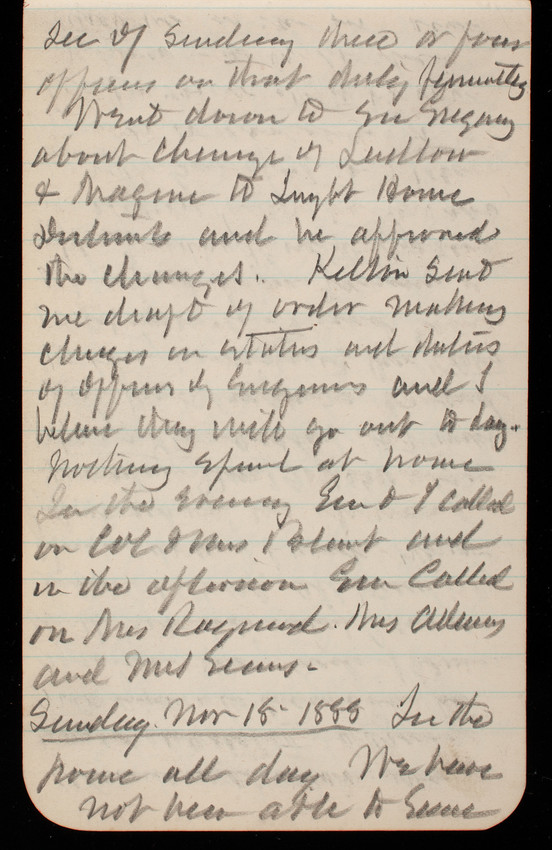 Sec of sending three or four
officers on that duty permanently
Went down to see Gregory
about change of Ludlow
& Maguire to Light House
Districts and he approved
the changes. Kelton sent
me draft of order making
changes in status and duties
of officers of Engineers and I
believe they will go out to day.
Nothing special at home
In the evening Em & I called
on Col & Mrs Blunt and
in the afternoon Em called
on Mrs Raymond. Mrs Adams
and Mrs Evans.
Sunday. Nov 18 1888 In the
home all day We have
not been able to